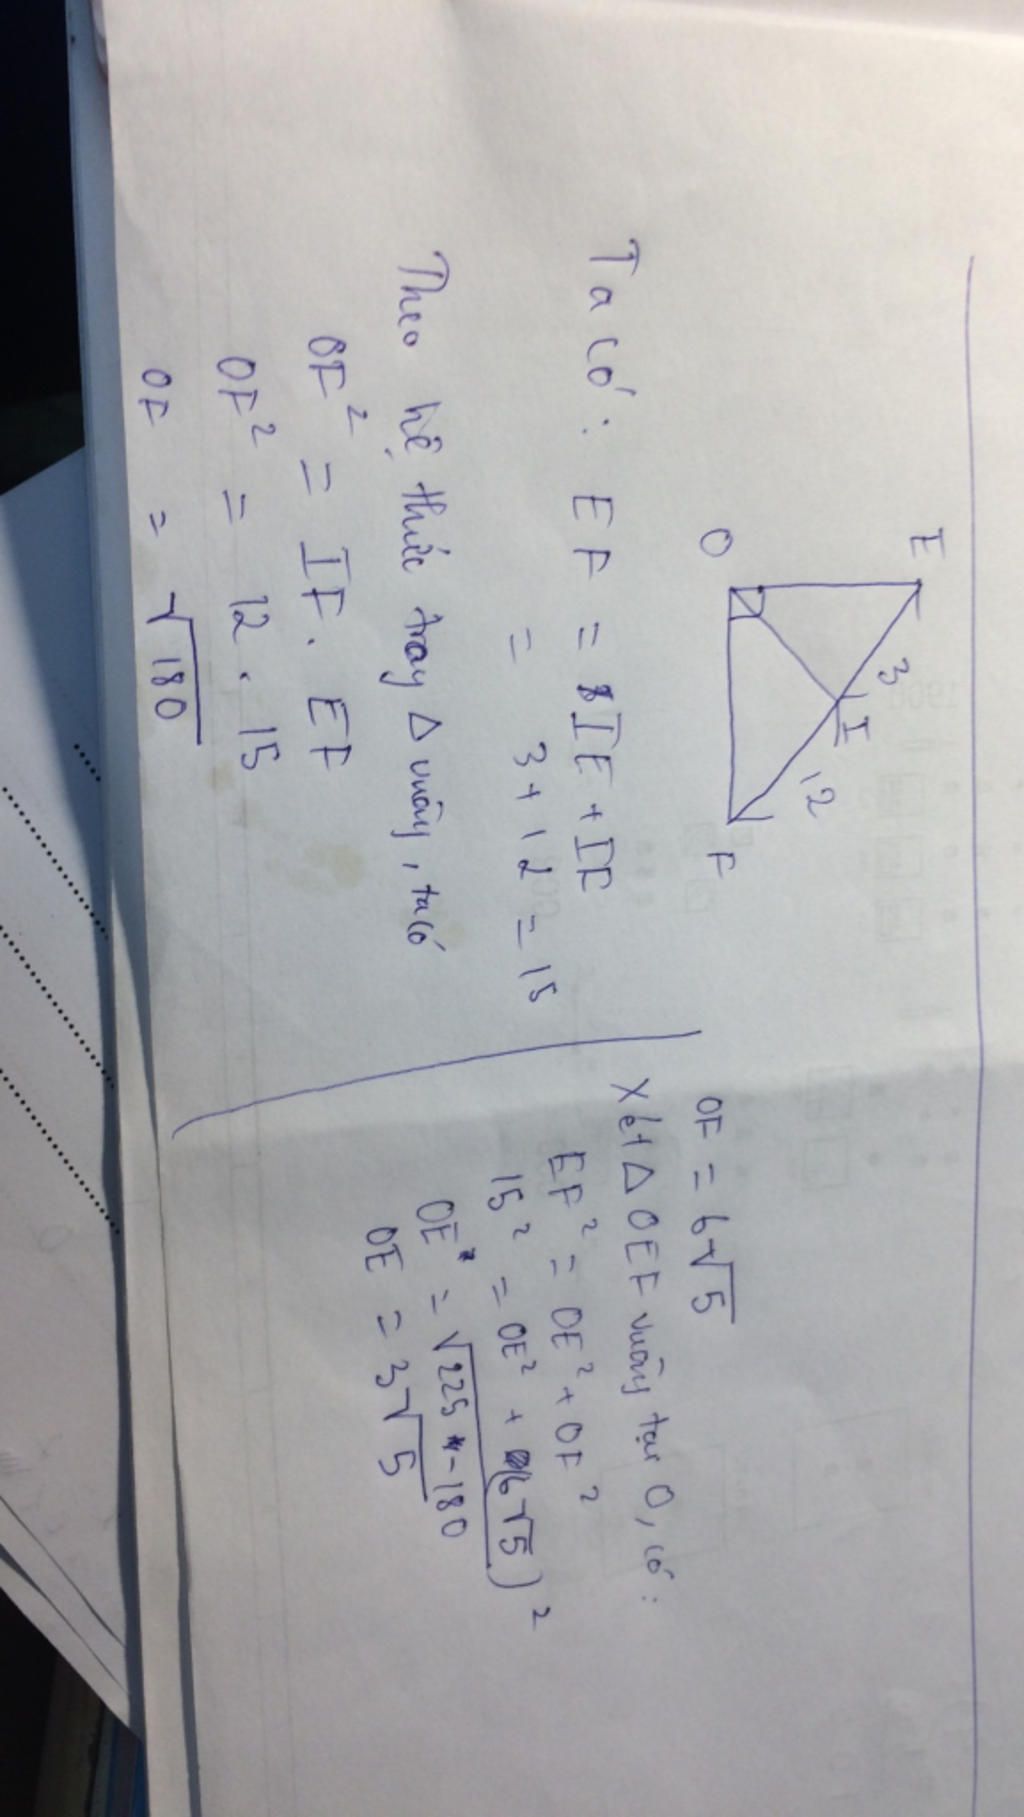 E
3
I
12
O
F
Ta có: EF = IE + IF
= 3 + 12 = 15
Theo hệ thức trong Δ vuông, ta có
OF² = IF . EF
OF² = 12 . 15
OF = √180
OF = 6√5
Xét Δ OEF vuông tại O, có:
EF² = OE² + OF²
15² = OE² + (6√5)²
OE = √225 - 180
OE = 3√5